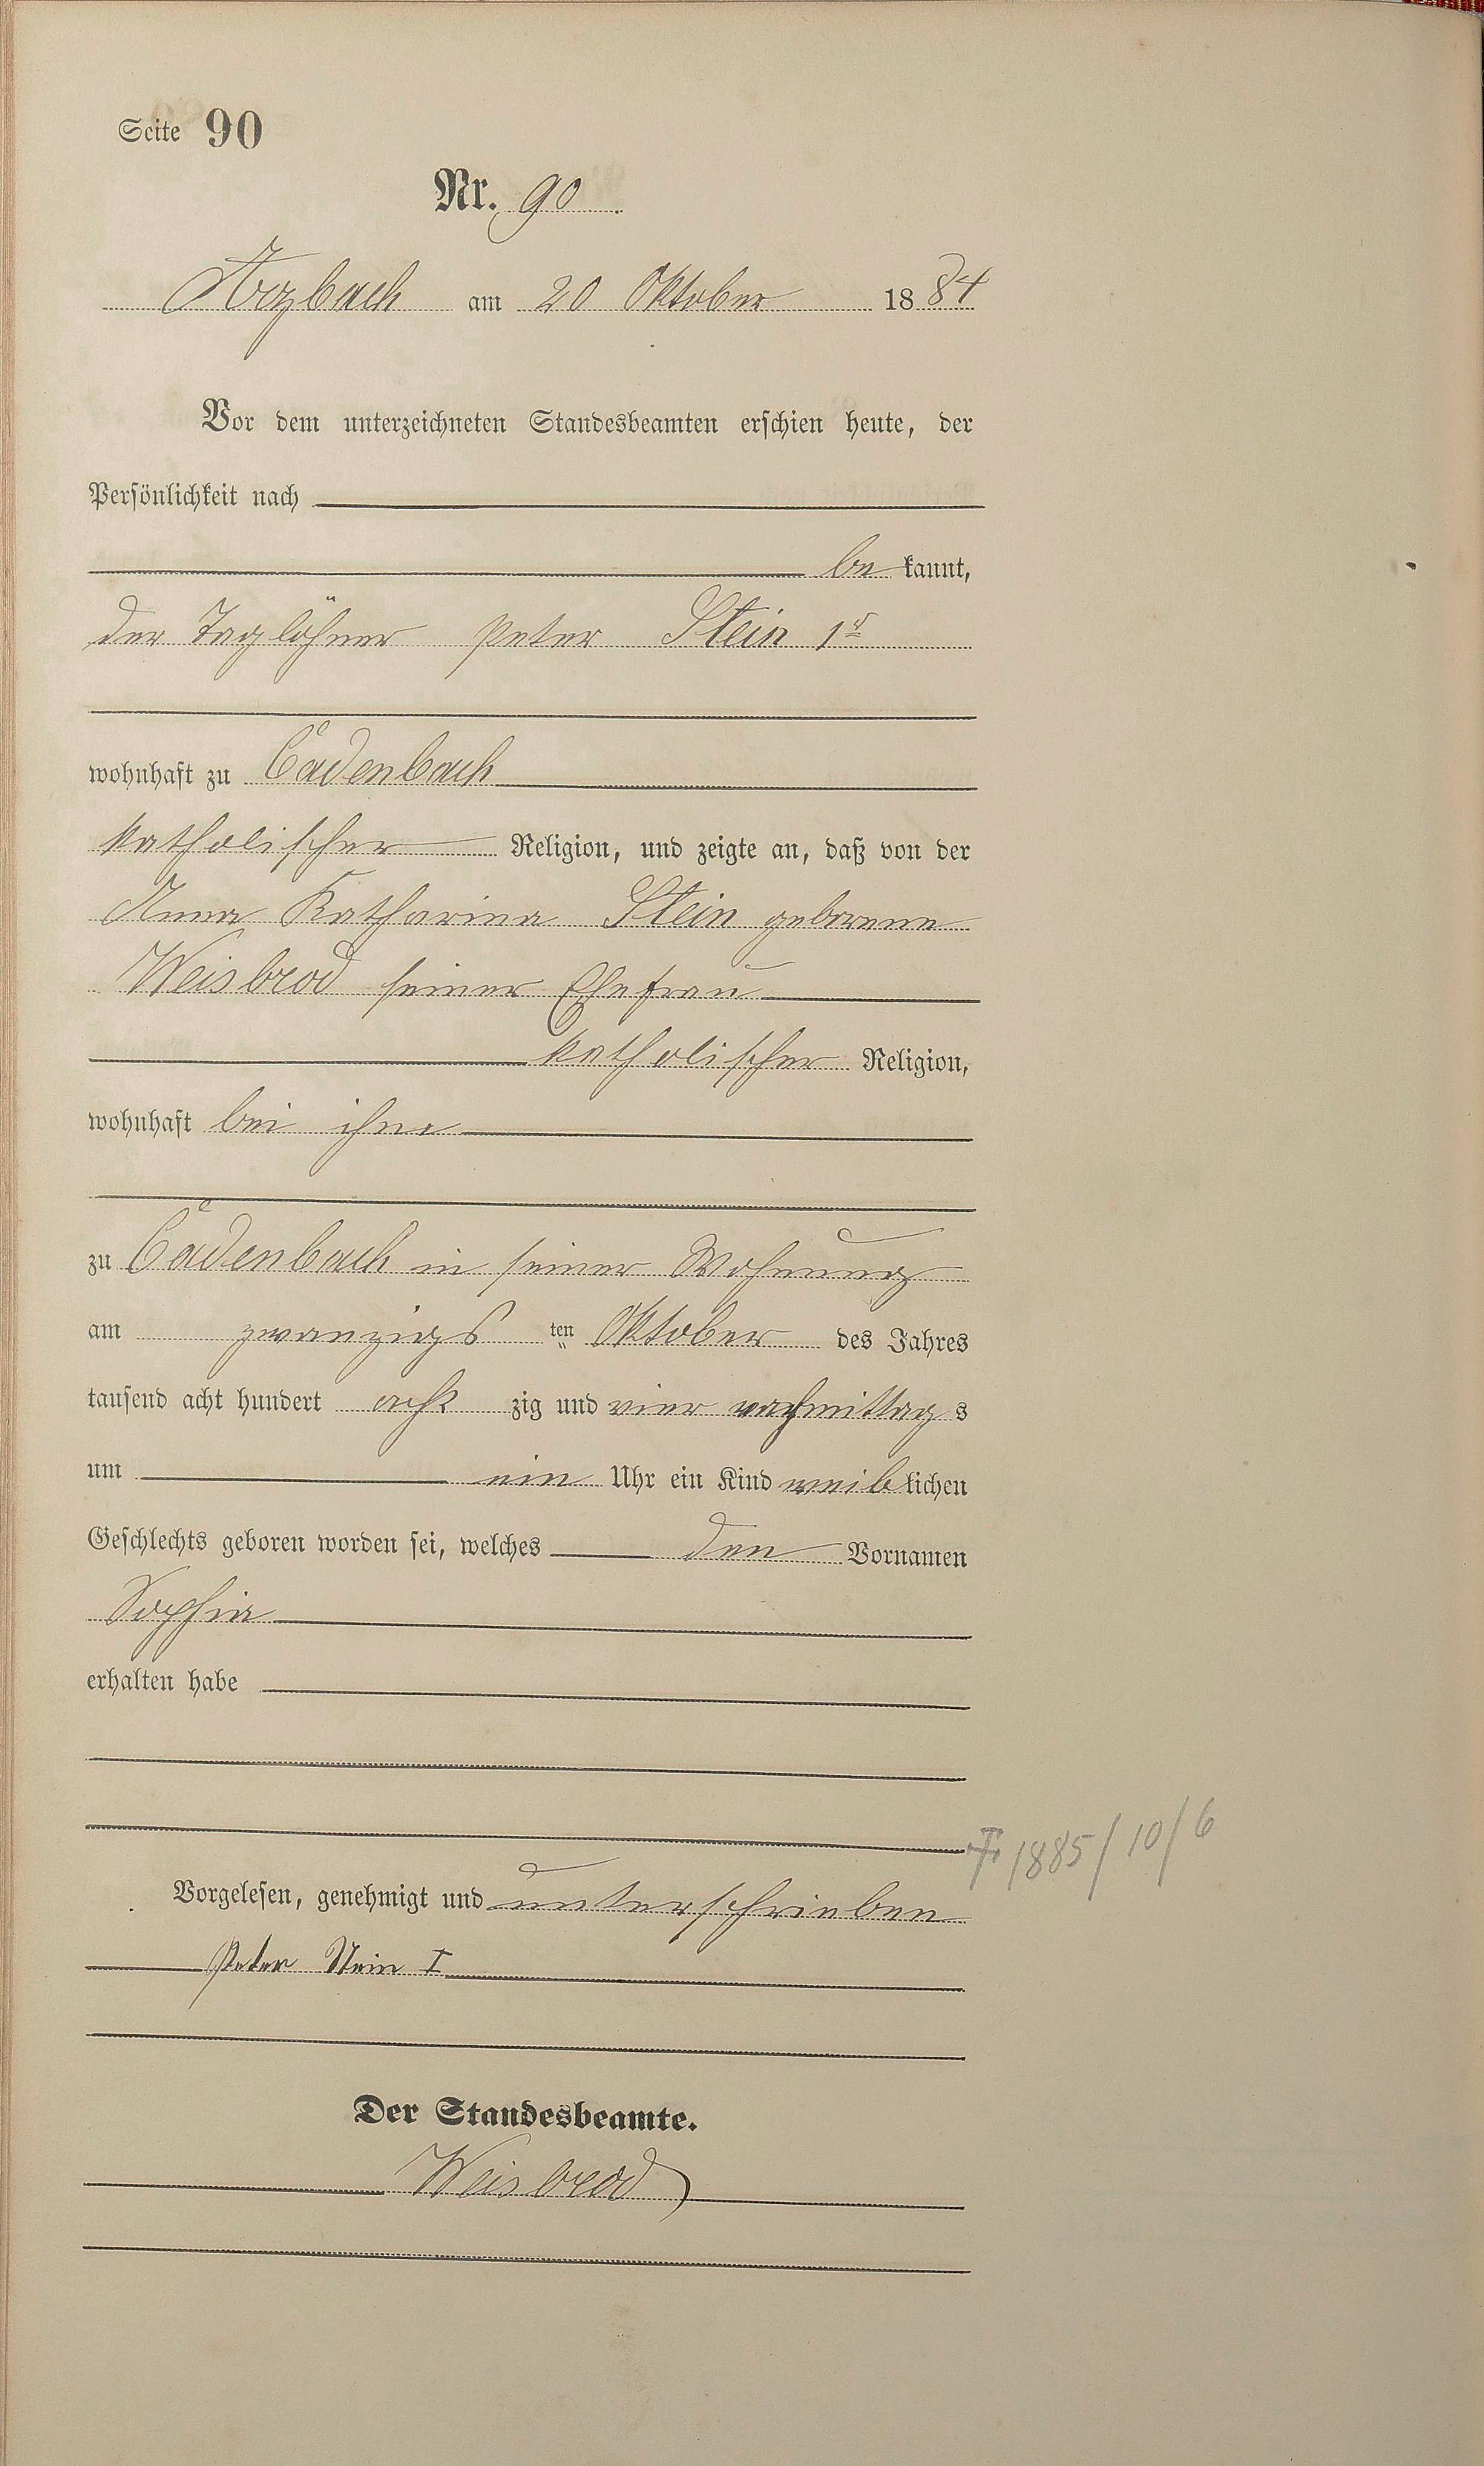 Seite 90
Nr. 90
Arzbach am 20 Oktober 1884
Vor dem unterzeichneten Standesbeamten erschien heute, der
Persönlichkeit nach
bekannt,
der Taglöhner Peter Stein 1r
wohnhaft zu Cadenbach
katholischer Religion, und zeigte an, daß von der
Anna Katharina Stein geborene
Weisbrod seiner Ehefrau
katholischer Religion,
wohnhaft bei ihm
zu Cadenbach in seiner Wohnung
am zwanzigsten Oktober des Jahres
tausend acht hundert achtzig und vier nachmittags
um ein Uhr ein Kind weiblichen
Geschlechts geboren worden sei, welches den Vornamen
Sophia
erhalten habe
† 1885/10/6
Vorgelesen, genehmigt und unterschrieben
Peter Stein I
Der Standesbeamte.
Weisbrod